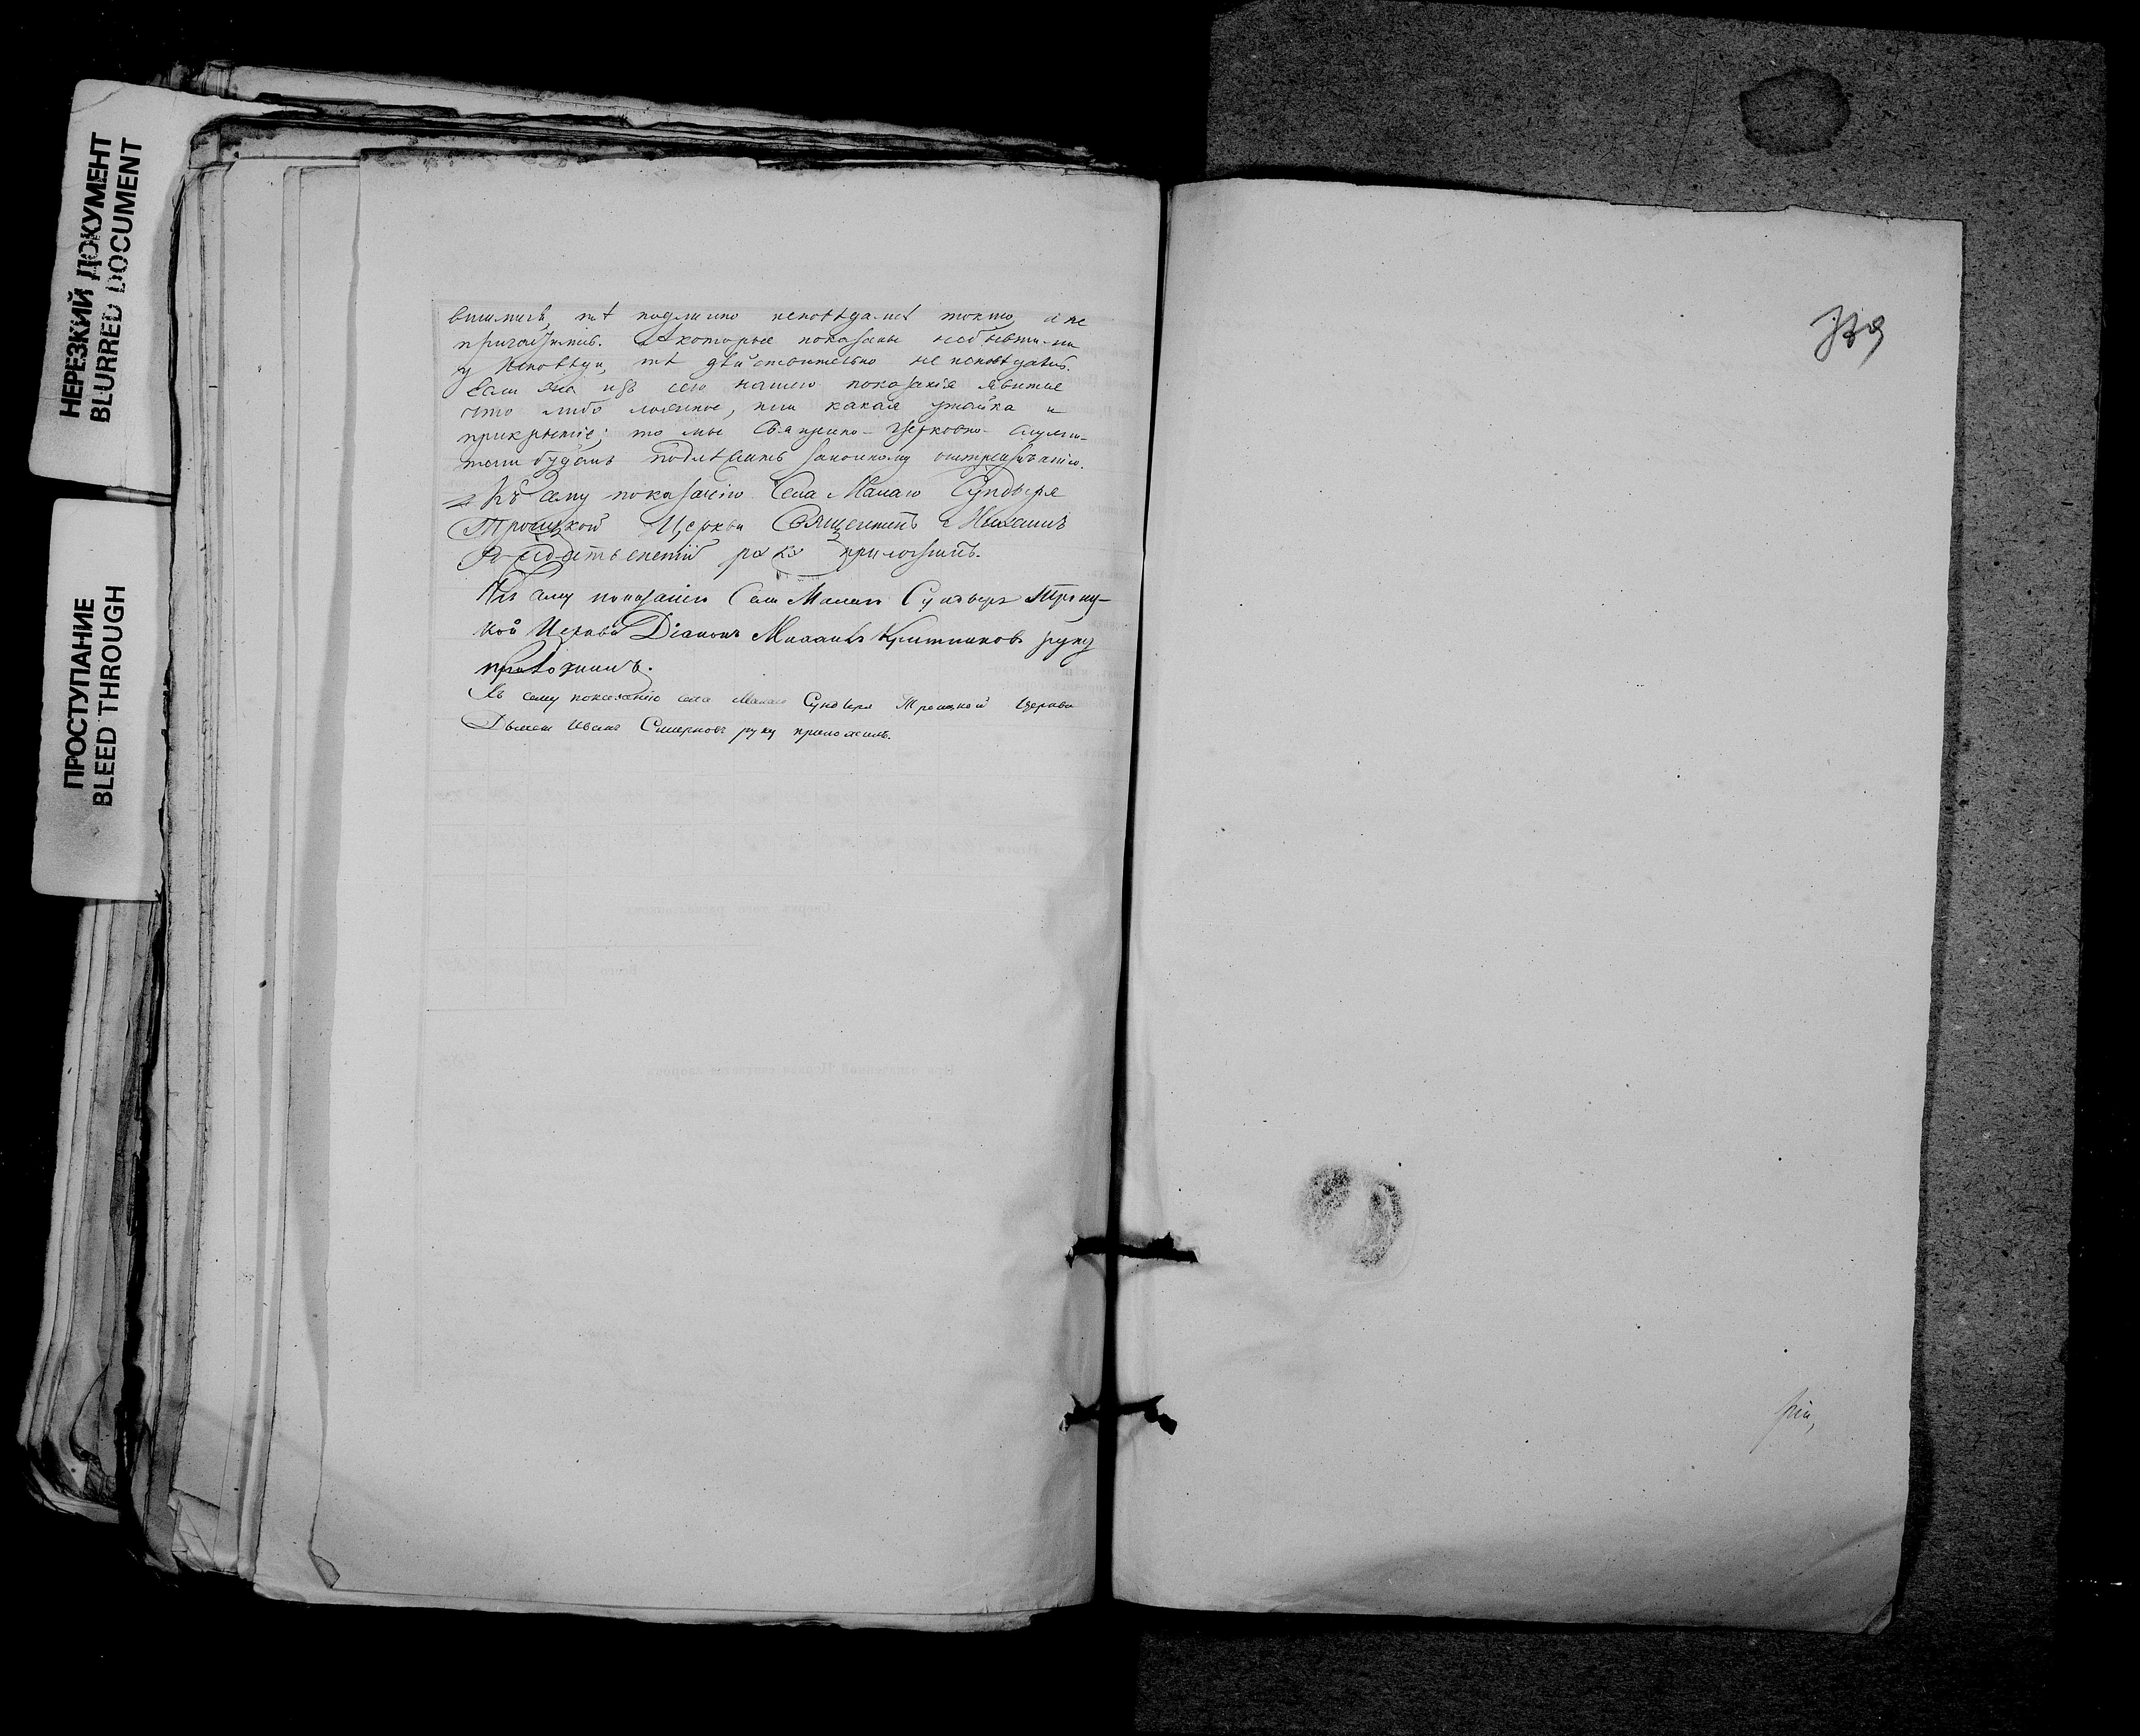 НЕРЕЗКИЙ ДОКУМЕНТ
BLURRED DOCUMENT
ПРОСТУПАНИЕ
BLEED THROUGH
тѣ подлинно исповѣдались токмо, а не
причастились. А которые показаны небывшими
у Исповѣди, тѣ дѣйствительно не исповѣдались.
Если же изъ сего нашего показанія явится
что либо ложное, или какая утайка и
прикрытіе; то мы Священно-Церковно-Служи-
тели будемъ подлежать законному
Къ сему показанію Села Малаго Сундыря
Троицкой Церкви Священникъ Михаилъ
Рождественскій руку приложилъ.
Къ сему показанію Села Малаго Сундыря Троиц-
кой Церкви Діаконъ Михаилъ руку
приложилъ.
Къ сему показанію села Малаго Сундыря Троицкой Церкви
Дьячекъ Иванъ Смирновъ руку приложилъ.